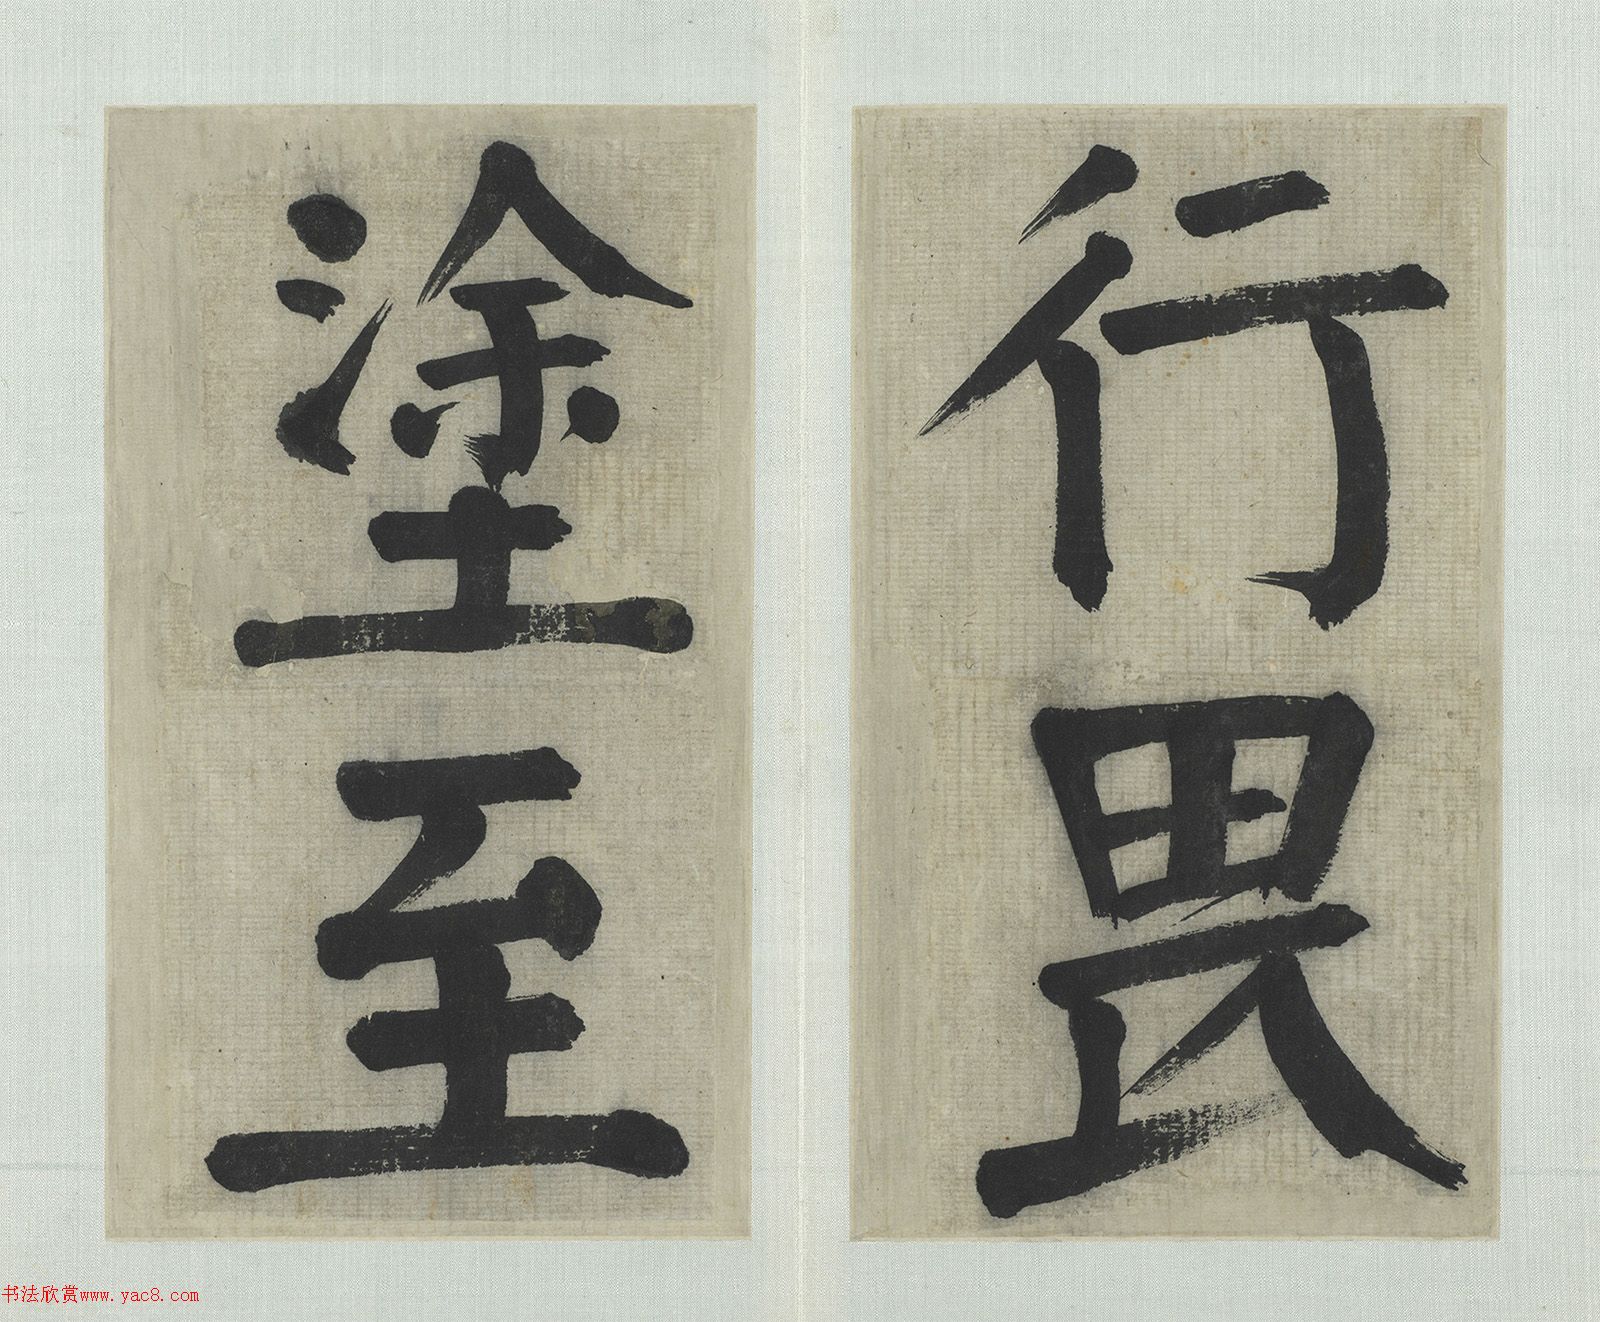 行畏
塗至
书法欣赏www.yac8.com